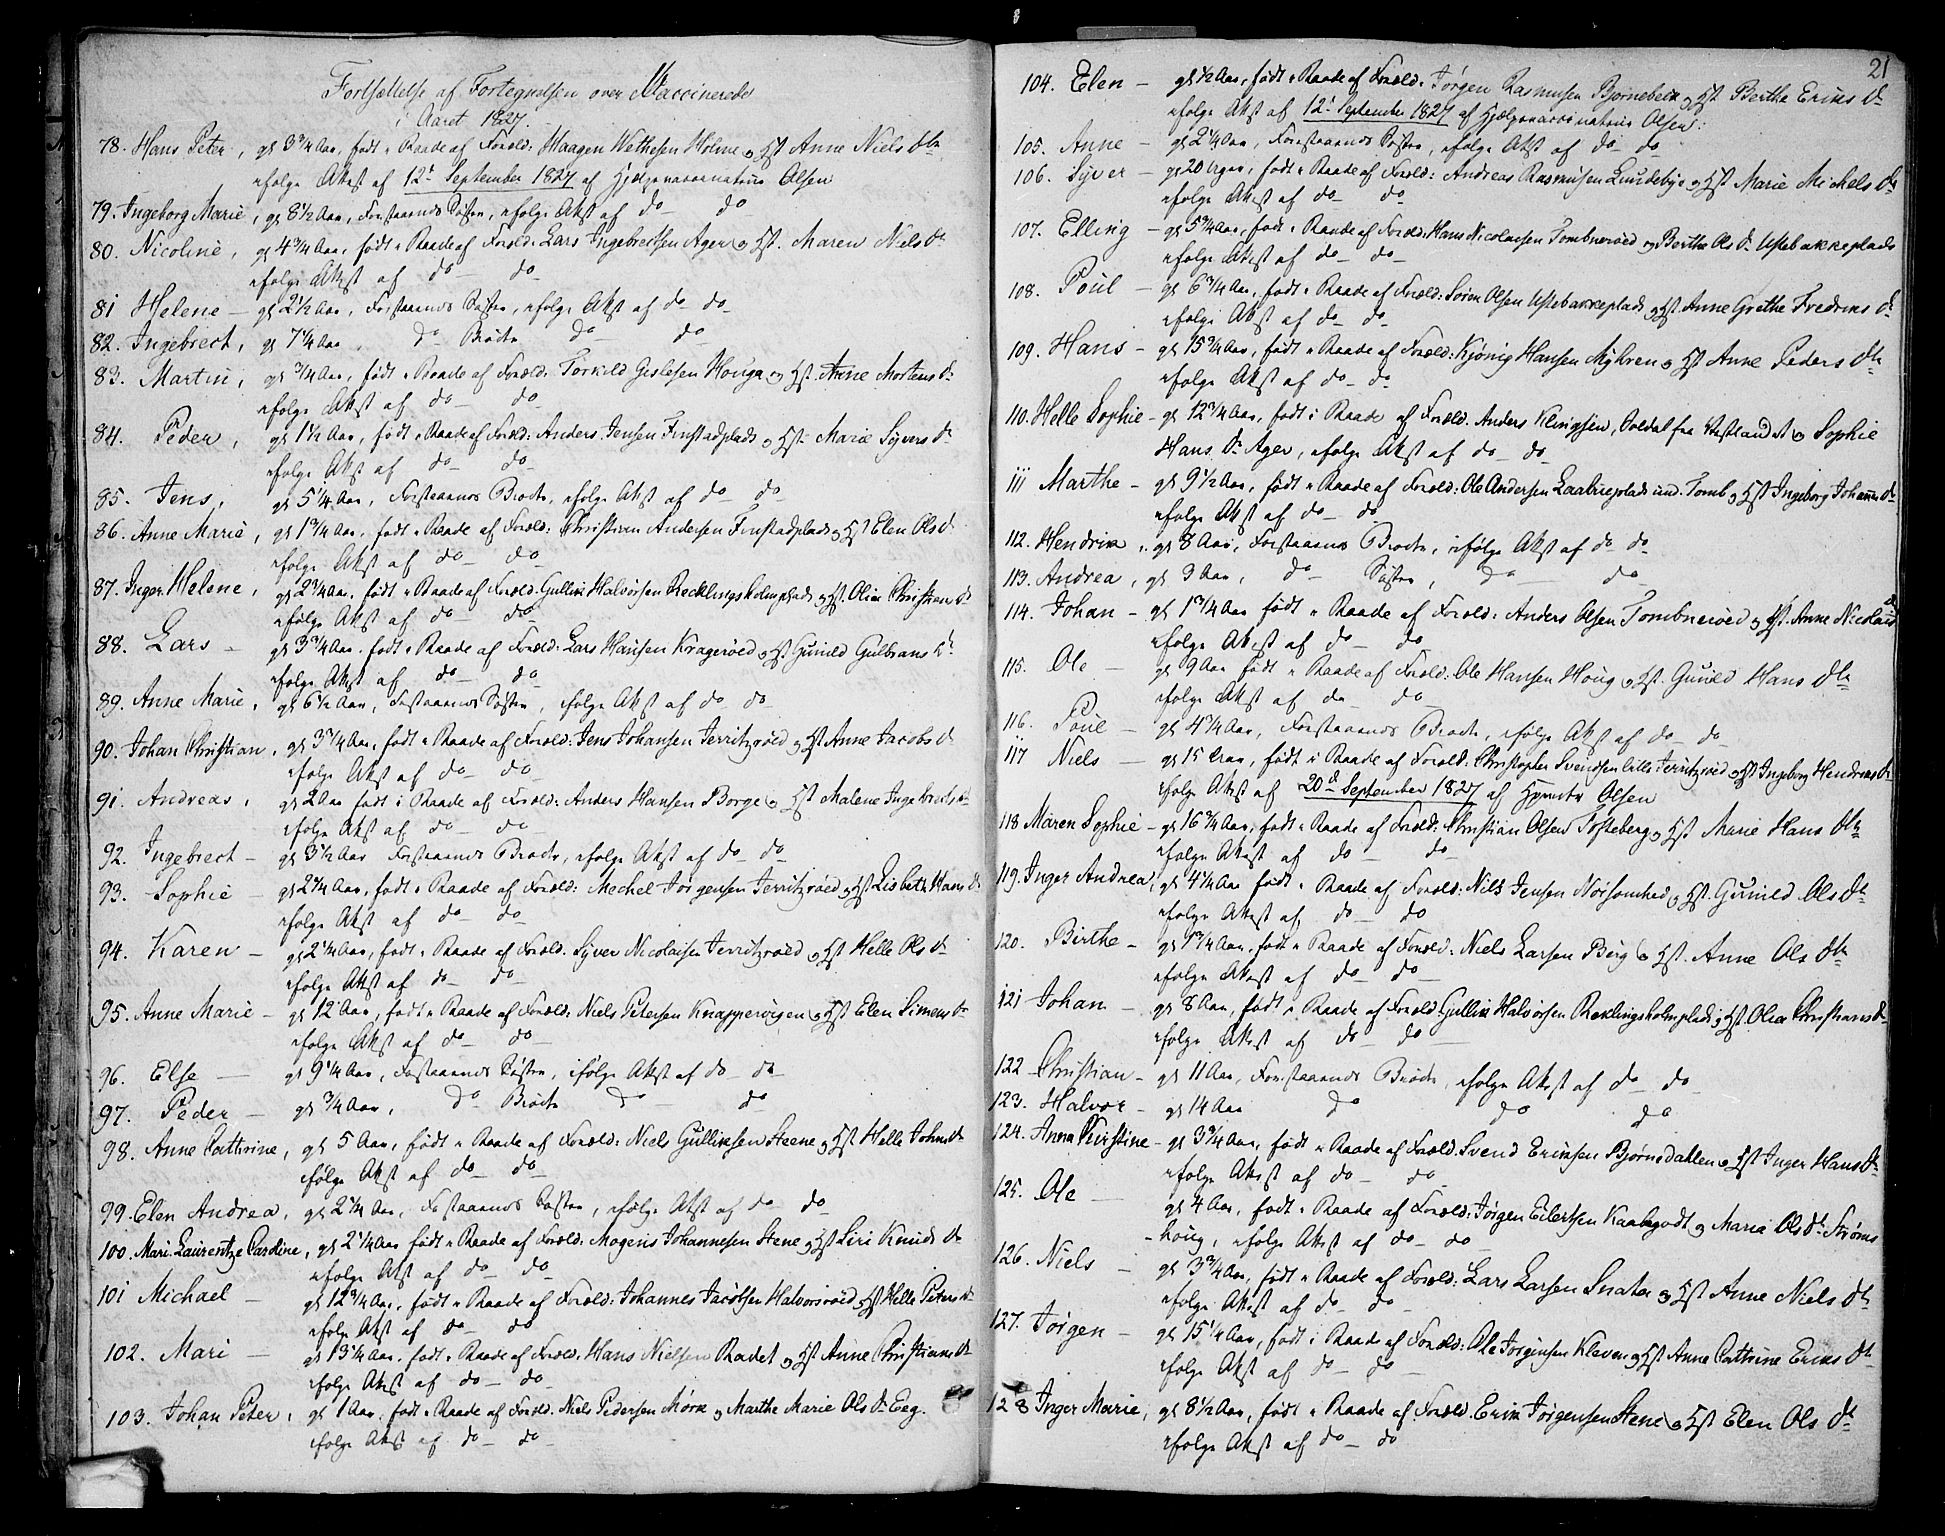 Fortsættelse af Fortegnelsen over Vaccinerede
i Aaret 1827.
78. Hans Peter, gl 3 3/4 Aar, født i Raade af Foræld: Haagen Wethesen Holme og Hst Anne Niels Dtr
ifølge Attest af 12t September 1827 af Hjælpevaccinateur Olsen
79. Ingeborg Marie, gl 8 1/2 Aar, Forstaaends Søster, ifølge Attst af do do
80. Nicoline, gl 4 3/4 Aar, født i Raade af Foræld: Lars Ingebretsen Ager og Hst. Maren Niels Dr
ifølge Attest af do do
81 Helene – gl 2 1/2 Aar, Forstaaends Søster, ifølge Attst af do do
82. Ingebrect, gl 7 1/4 Aar, do Broder do do
83. Martin, gl 3/4 Aar, født i Raade af Foræld: Torkild Gislesen Houga og Hst. Anne Mortens Dr
ifølge Attst af do do
84. Peder, gl 1 1/2 Aar, født i Raade af Foræld: Anders Jensen Finstadplads og Hst Marie Syvers Dr
ifølge Attst af do do
85. Jens, gl 5 1/4 Aar, Forstaaends Broder, ifølge Attst af do do
86. Anne Marie, gl 1 3/4 Aar, født i Raade af Foræld: Christian Andersen Finstadplads og Hst Elen Ols Dr
ifølge Attst af do do
87. Inger Helene, gl 2 3/4 Aar, født i Raade af Foræld: Gullik Halvorsen Recklingsholmplads og Hst. Olia Christians Dr
ifølge Attst af do do
88. Lars – gl 3 3/4 Aar, født i Raade af Foræld: Lars Hansen Kragerøed og Hst Gunild Gulbrans Dr
ifølge Attst af do do
89. Anne Marie, gl 6 1/2 Aar, Forstaaends Søster, ifølge Attst af do do
90. Johan Christian, gl 3 3/4 Aar, født i Raade af Foræld: Jens Johansen Jerritzrøed og Hst Anne Jacobs Dr
ifølge Attst af do do
91. Andreas, gl 2 Aar født i Raade af Foræld: Anders Hansen Borge og Hst Malene Ingebrects Dr
ifølge Attst af do do
92. Ingebrect – gl 3 1/2 Aar Forstaaends Broder, ifølge Attst af do do
93. Sophie – gl 2 3/4 Aar, født i Raade af Foræld: Mechel Jørgensen Jerritzrøed og Hst Lisbeth Hans Dr
ifølge Attst af do do
94. Karen – gl 2 1/4 Aar, født i Raade af Foræld: Syver Nicolaisen Jerritzrøed og Hst Helle Ols Dr
ifølge Attst af do do
95. Anne Marie – gl 12 Aar, født i Raade af Foræld: Niels Petersen Knappervigen og Hst Elen Simens Dr
ifølge Attst af do do
96. Else – gl 9 1/4 Aar, Forstaaends Søster, ifølge Attst af do do
97. Peder – gl 3/4 Aar, do Broder do do
98. Anne Cathrine, gl 5 Aar, født i Raade af Foræld: Niels Gulliksen Steene og Hst Helle Johns Dr
ifølge Attst af do do
99. Elen Andrea, gl 2 1/4 Aar, Forstaaends Søster, ifølge Attst af do do
100. Mari Laurentze Cardine, gl 2 1/4 Aar født i Raade af Foræld: Mogens Johannesen Stene og Hst Siri Knuds Dr
ifølge Attst af do do
101 Michael – gl 12 3/4 Aar, født i Raade af Foræld: Johannes Jacobsen Halvorsrøed og Hst Helle Peters Dr
ifølge Attst af do do
102. Mari – gl 13 1/4 Aar, født i Raade af Foræld: Hans Nielsen Radet og Hst Anne Christians Dr
ifølge Attst af do do
103. Johan Peter, gl 1 Aar, født i Raade af Foræld: Niels Pedersen Mørk og Marthe Marie Ols Dr Eeg.
ifølge Attst af do do
21
104. Elen – gl 1/2 Aar, født i Raade af Foræld: Jørgen Rasmusen Bjørnebek og Hst Berthe Eriks Dr
ifølge Attst af 12t September 1827 af Hjælpevaccinateur Olsen:
105. Anne – gl 2 1/4 Aar, Forstaaends Søster, ifølge Attst af do do
106. Syver – gl 20 Uger, født i Raade af Foræld: Andreas Rasmusen Lundebye og Hst Marie Michels Dr
ifølge Attst af do do
107. Elling – gl 5 3/4 Aar, født i Raade af Foræld: Hans Nicolaisen Tombnerøed og Berthe Ols Dr Ustebakkeplads
ifølge Attst af do do
108. Poul – gl 6 3/4 Aar, født i Raade af Foræld: Søren Olsen Ustebakkeplads og Hst. Anne Grethe Fredriks Dr
ifølge Attst af do do
109. Hans – gl 15 3/4 Aar, født i Raade af Foræld: Kjønig Hansen Myhren og Hst Anne Peders Dtr
ifølge Attst af do do
110. Helle Sophie – gl 12 3/4 Aar, født i Raade af Foræld. Anders Klingsen, Soldat fra Vestlandet og Sophie
Hans Dr Ager, ifølge Attst af do do
111 Marthe – gl 9 1/2 Aar, født i Raade af Foræld: Ole Andersen Laabyeplads und. Tomb og Hst Ingeborg Johannes Dr
ifølge Attst af do do
112. Hendrik, gl 8 Aar, Forstaaends Broder, ifølge Attst af do do
113. Andrea, gl 3 Aar, do Søster, do do
114. Johan – gl 1 3/4 Aar født i Raade af Foræld: Anders Olsen Tombnerøed og Hst. Anne Nicolais Dr
ifølge Attst af do do
115. Ole – gl 9 Aar født i Raade af Foræld: Ole Hansen Houg og Hst. Gunild Hans Dtr
ifølge Attst af do do
116. Poul – gl 4 3/4 Aar, Forstaaends Broder, ifølge Attst af do do
117 Niels – gl 15 Aar, født i Raade af Foræld: Christopher Svendsen lille Jerritzrøed og Hst Ingeborg Hendriks Dr
ifølge Attst af 20d September 1827 af Olsen
118 Maren Sophie – gl 16 3/4 Aar, født i Raade af Foræld: Christian Olsen Tofteberg og Hst Marie Hans Dtr
ifølge Attst af do do
119. Inger Andrea, gl 4 1/4 Aar født i Raade af Foræld: Nils Jensen Norsomhed og Hst. Gunild Ols Dr
ifølge Attst af do do
120. Birthe – gl 1 3/4 Aar, født i Raade af Foræld: Niels Larsen Berg og Hst. Anne Ols Dtr
ifølge Attst af do do
121 Johan – gl 8 Aar, født i Raade af Foræld: Gullik Halvorsen Reklingsholmplads og Hst. Olia Christians Dr
ifølge Attst af do do
122 Christian – gl 11 Aar, Forstaaends Broder, ifølge Attst af do do
123. Halvor – gl 14 Aar do do do
124. Anna Kirstine – gl 3 3/4 Aar, født i Raade af Foræld: Svend Eriksen Bjørnedahlen og Hst Inger Hans Dr
ifølge Attst af do do
125. Ole – gl 4 Aar, født i Raade af Foræld: Jørgen Eilertsen Kaabegodt og Maria Ols Dr Strøms
houg, ifølge Attst af do do
126. Niels – gl 3 3/4 Aar, født i Raade af Foræld: Lars Larsen Snater og Hst Anne Niels Dtr
ifølge Attst af do do
127. Jørgen – gl 15 1/4 Aar, født i Raade af Foræld: Ole Jørgensen Kleven og Hst Anne Cathrine Eriks Dtr
ifølge Attst af do do
128 Inger Marie, gl 8 1/2 Aar, født i Raade af Foræld. Erik Jørgensen Stene og Hst Elen Ols Dtr
ifølge Attst af do do